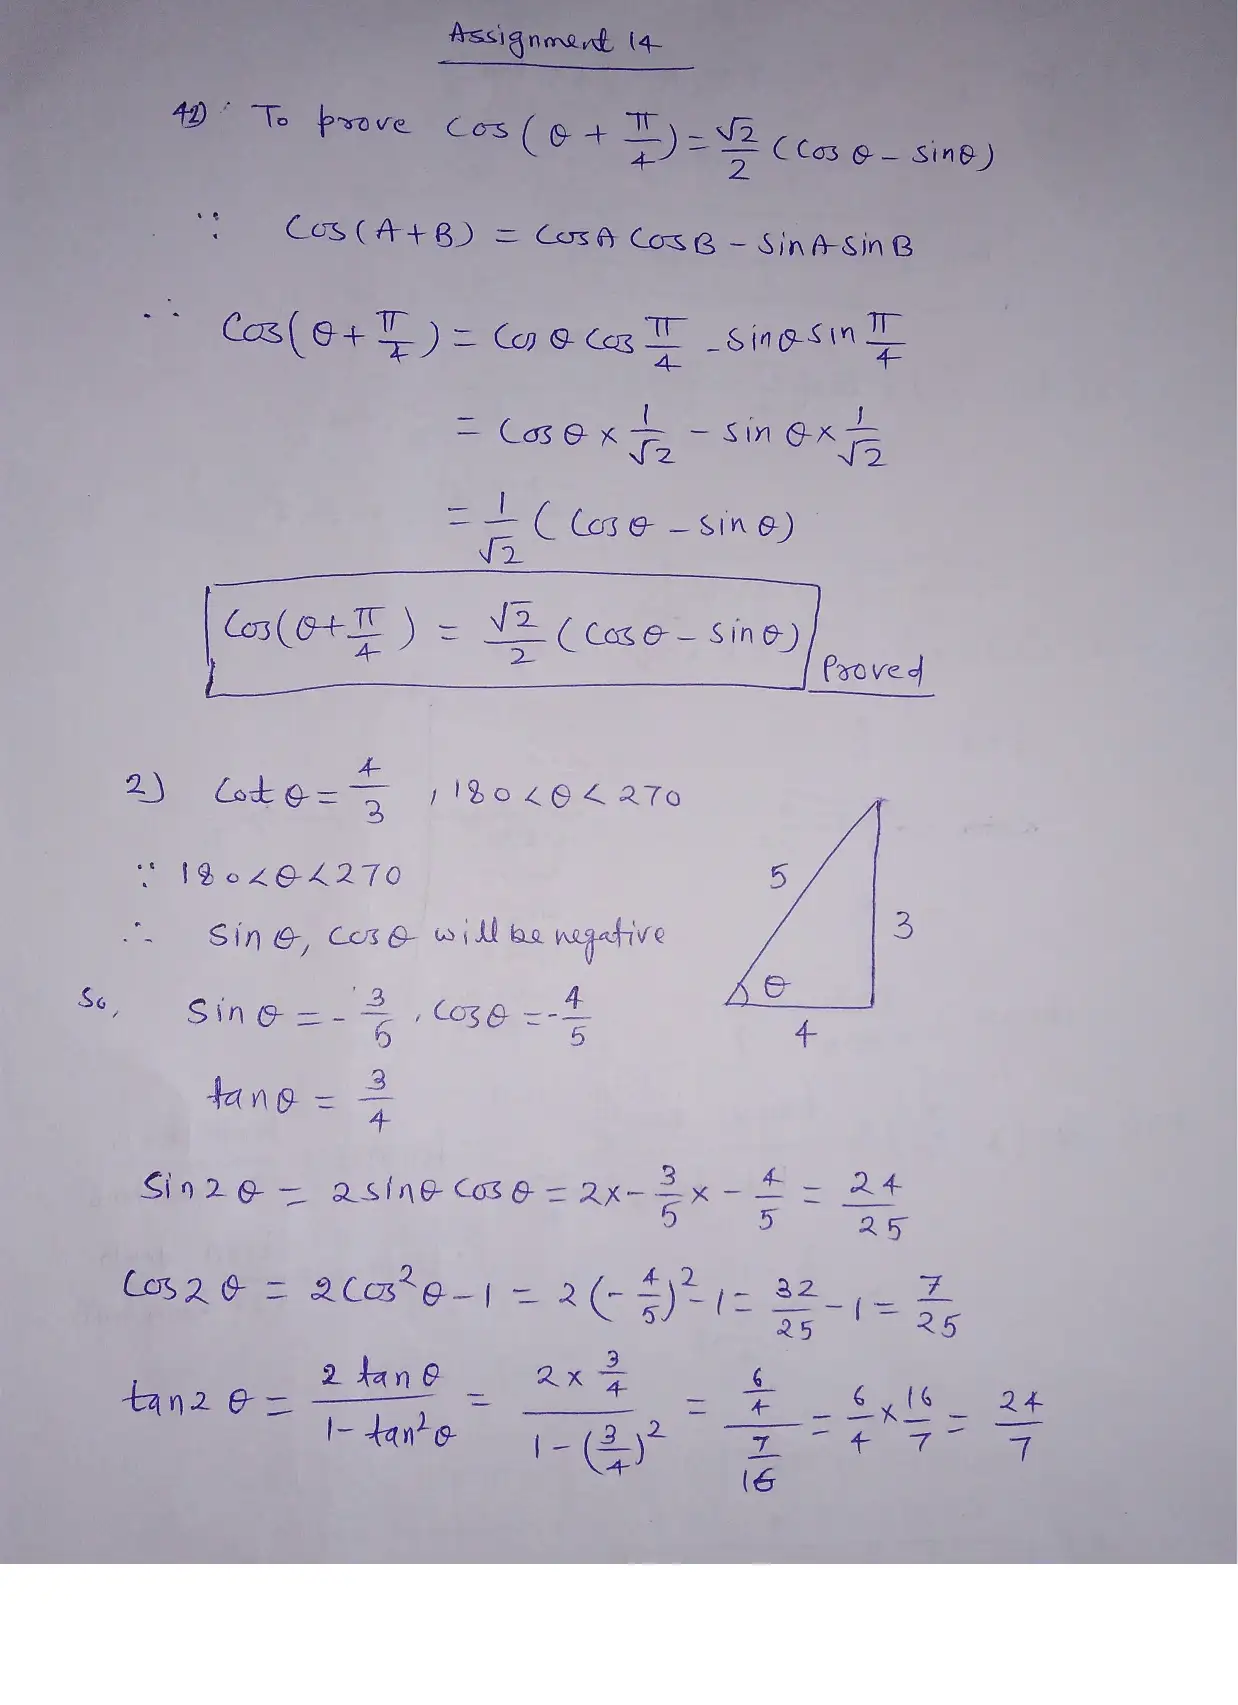 Assignment 14
1) To prove cos(θ + π/4) = √2/2 (cos θ - sin θ)
∵ Cos(A+B) = cos A cos B - sin A sin B
∴ Cos(θ + π/4) = cos θ cos π/4 - sin θ sin π/4
= cos θ × 1/√2 - sin θ × 1/√2
= 1/√2 (cos θ - sin θ)
Cos(θ + π/4) = √2/2 (cos θ - sin θ) Proved
2) Cot θ = 4/3 , 180 < θ < 270
∵ 180 < θ < 270
∴ sin θ, cos θ will be negative
So, sin θ = - 3/5 , cos θ = - 4/5
tan θ = 3/4
5
3
θ
4
Sin 2θ = 2 sin θ cos θ = 2 × - 3/5 × - 4/5 = 24/25
Cos 2θ = 2 Cos² θ - 1 = 2 (- 4/5)² - 1 = 32/25 - 1 = 7/25
tan 2θ = 2 tan θ / 1 - tan² θ = 2 × 3/4 / 1 - (3/4)² = 6/4 / 7/16 = 6/4 × 16/7 = 24/7